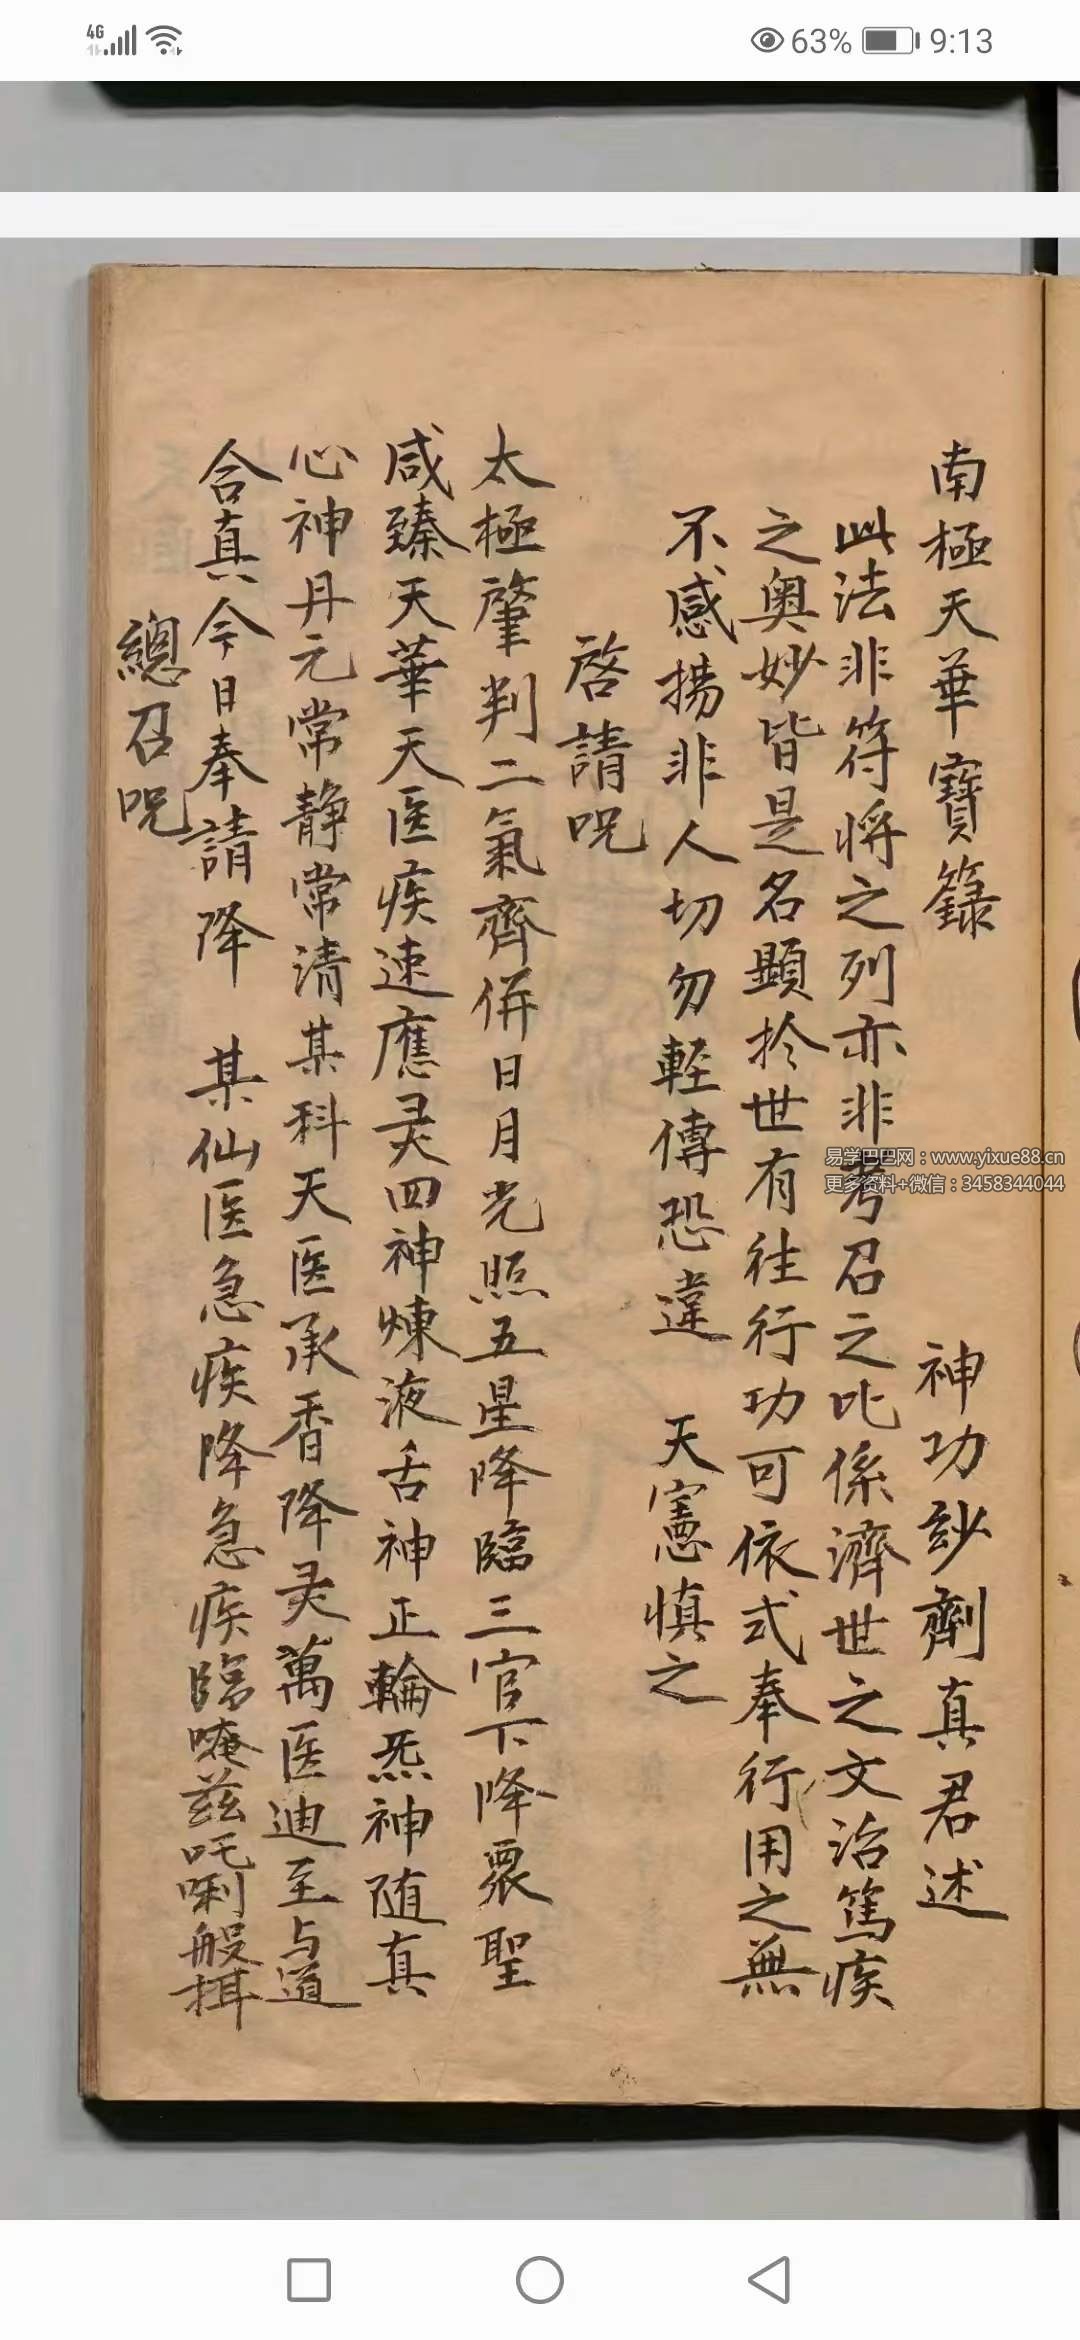 4G 63% 9:13
南極天華寶籙 神功妙劑真君述
此法非符將之列亦非考召之比係濟世之文治篤疾
之奧妙皆是名顯於世有往行功可依式奉行用之無
不感揚非人切勿輕傳恐違 天憲慎之
啓請呪
太極肇判二氣齊併日月光照五星降臨三官下降眾聖
咸臻天華天医疾速應灵四神煉液舌神正輪炁神随真
心神丹元常静常清某科天医承香降灵萬医迪至与道
合真今日奉請降 某仙医急疾降急疾臨唵茲吒唎般揖
總召呪
易学巴巴网：www.yixue88.cn
更多资料+微信：3458344044